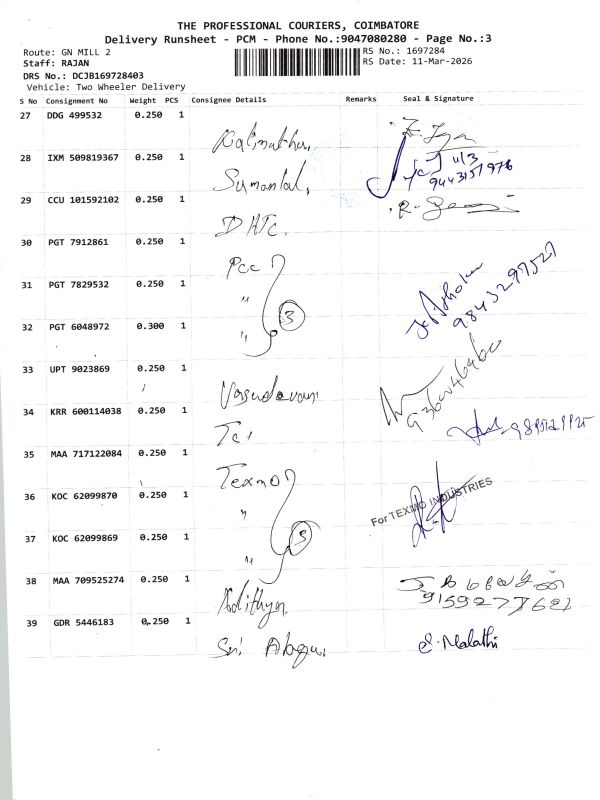 THE PROFESSIONAL COURIERS, COIMBATORE
Delivery Runsheet - PCM - Phone No.:9047080280 - Page No.:3
Route: GN MILL 2 RS No.: 1697284
Staff: RAJAN RS Date: 11-Mar-2026
DRS No.: DCJB169728403
Vehicle: Two Wheeler Delivery
S No Consignment No Weight PCS Consignee Details Remarks Seal & Signature
27 DDG 499532 0.250 1
28 IXM 509819367 0.250 1 11/3
9443157976
29 CCU 101592102 0.250 1
DHTC.
30 PGT 7912861 0.250 1
Pcc
31 PGT 7829532 0.250 1
" 3 9843297527
32 PGT 6048972 0.300 1
"
33 UPT 9023869 0.250 1
Vasudevan
34 KRR 600114038 0.250 1
35 MAA 717122084 0.250 1
Texmo
36 KOC 62099870 0.250 1 For TEXMO INDUSTRIES
"
37 KOC 62099869 0.250 1
"
38 MAA 709525274 0.250 1
Adithya
39 GDR 5446183 0.250 1
Sri S. Malathi